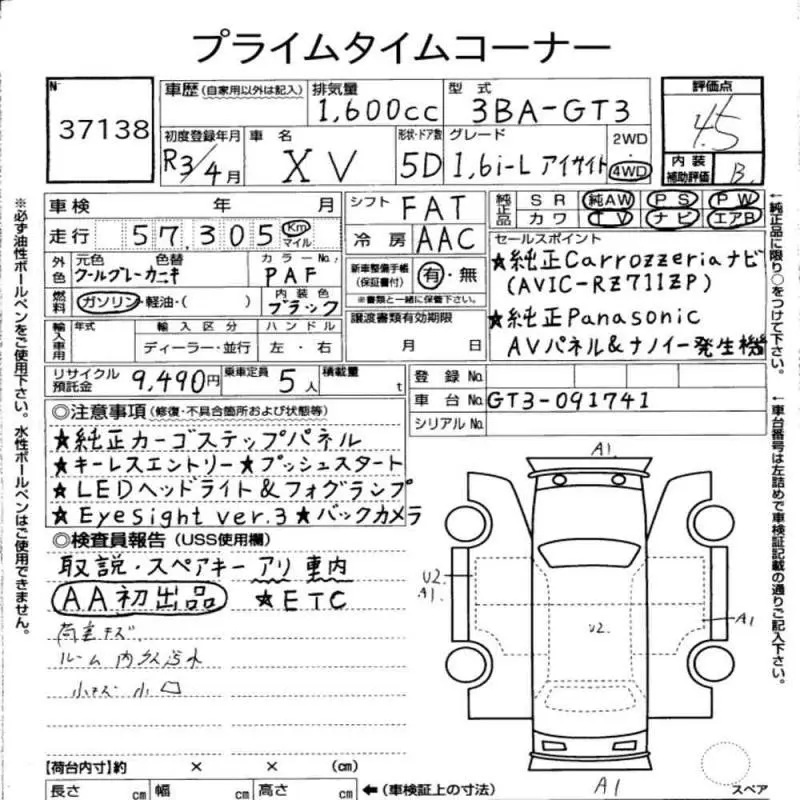 プライムタイムコーナー
No. 37138
車歴 (自家用以外は記入) 排気量 1,600cc 型式 3BA-GT3 評価点 4.5
初度登録年月 R3/4月 車名 XV 形状・ドア数 5D グレード 1.6i-L アイサイト 2WD 4WD
内装補助評価 B
車検 年 月 シフト FAT 純正品 SR 純AW PS PW
走行 57,305 Km マイル 冷房 AAC カワ TV ナビ エアB
外色 元色 クールグレーカーキ 色替 カラーNo. PAF 新車整備手帳(保証書付) 有・無
※書類と一緒に保管下さい。
セールスポイント
★純正Carrozzeriaナビ
(AVIC-RZ711ZP)
★純正Panasonic
AVパネル&ナノイー発生機
燃料 ガソリン・軽油・( ) 内装色 ブラック
譲渡書類有効期限 月 日
輸入車用 年式 輸入区分 ハンドル
ディーラー・並行 左・右
リサイクル預託金 9,490円 乗車定員 5人 積載量 t
登録No.
車台No. GT3-091741
シリアルNo.
◎注意事項(修復・不具合箇所および状態等)
★純正カーゴステップパネル
★キーレスエントリー★プッシュスタート
★LEDヘッドライト&フォグランプ
★Eyesight ver.3★バックカメラ
◎検査員報告(USS使用欄)
取説・スペアキー アリ 車内
AA初出品 ★ETC
荷室キズ
ルーム内
A1
U2
A1
U2
A1
A1
スペア
【荷台内寸】約 × × (cm)
長さ cm 幅 cm 高さ cm ←(車検証上の寸法)
※必ず油性ボールペンをご使用下さい。水性ボールペンはご使用できません。
←純正品に限り○をつけて下さい。
←車台番号は左詰めで車検証記載の通りご記入下さい。